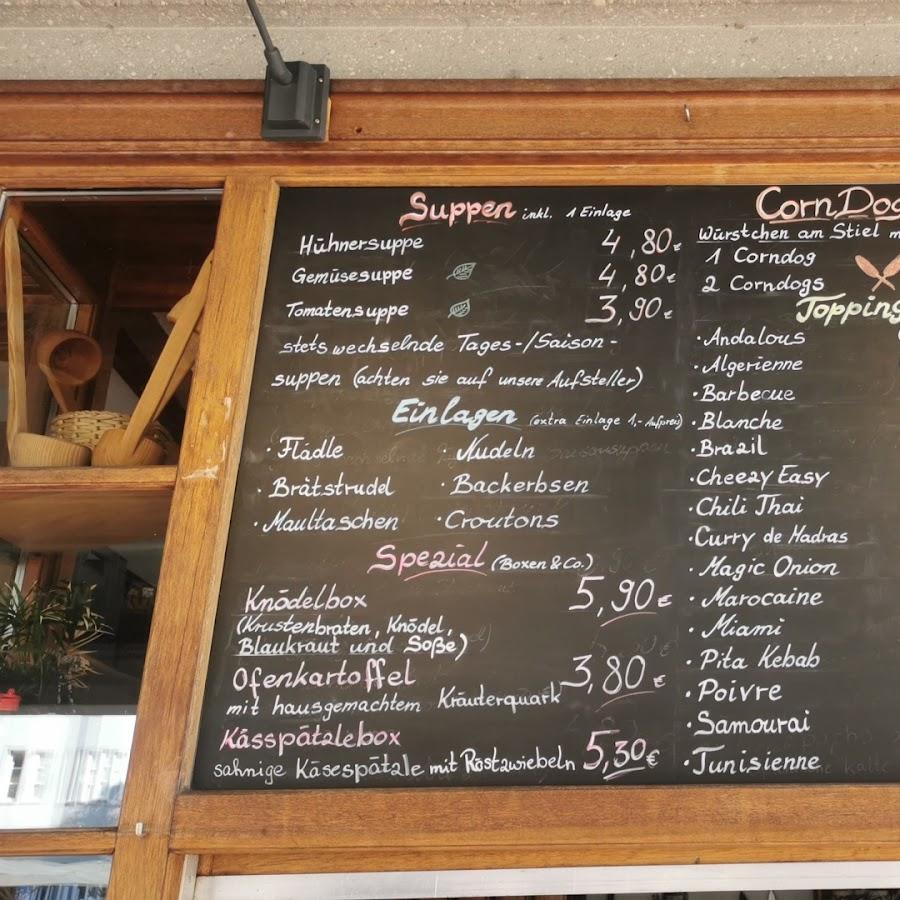 Suppen inkl. 1 Einlage
Hühnersuppe 4,80€
Gemüsesuppe 4,80€
Tomatensuppe 3,90€
stets wechselnde Tages-/Saison-
suppen (achten sie auf unsere Aufsteller)
Einlagen (extra Einlage 1,- Aufpreis)
· Flädle · Nudeln
· Brätstrudel · Backerbsen
· Maultaschen · Croutons
Spezial (Boxen & Co.)
Knödelbox 5,90€
(Krustenbraten, Knödel,
Blaukraut und Soße)
Ofenkartoffel 3,80€
mit hausgemachtem Kräuterquark
Kässpätzlebox
sahnige Käsespätzle mit Röstzwiebeln 5,30€
CornDog
Würstchen am Stiel m
1 Corndog
2 Corndogs
Topping
· Andalous
· Algerienne
· Barbecue
· Blanche
· Brazil
· Cheezy Easy
· Chili Thai
· Curry de Madras
· Magic Onion
· Marocaine
· Miami
· Pita Kebab
· Poivre
· Samourai
· Tunisienne